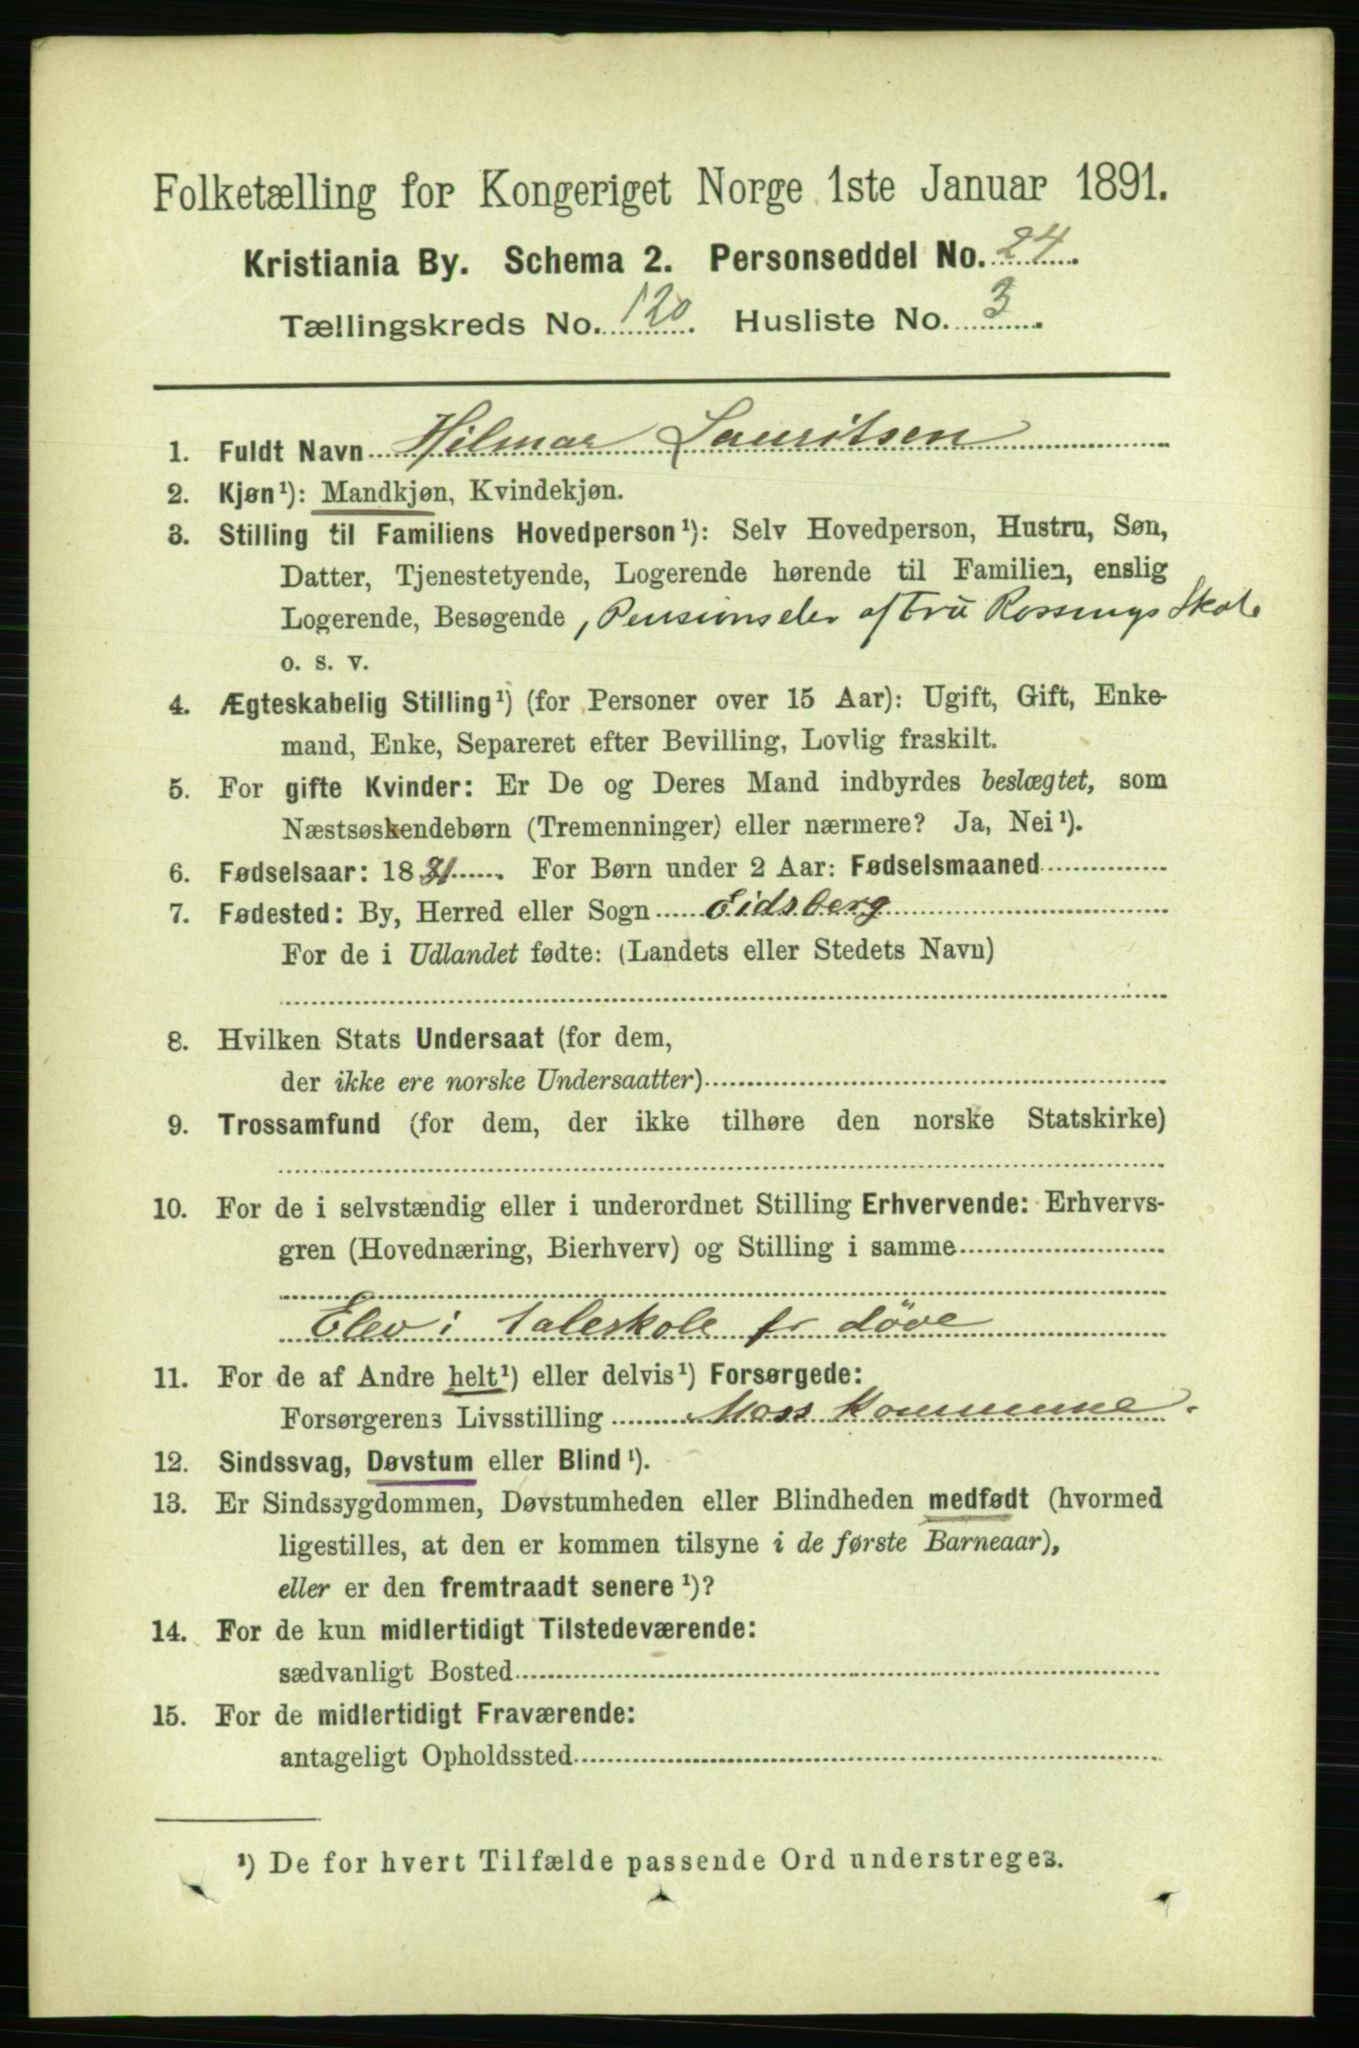 Folketælling for Kongeriget Norge 1ste Januar 1891.
Kristiania By. Schema 2. Personseddel No. 24.
Tællingskreds No. 120. Husliste No. 3.
1. Fuldt Navn Hilmar Lauritsen
2. Kjøn¹): Mandkjøn, Kvindekjøn.
3. Stilling til Familiens Hovedperson¹): Selv Hovedperson, Hustru, Søn,
Datter, Tjenestetyende, Logerende hørende til Familien, enslig
Logerende, Besøgende, Pensionselev af Fru Rossings Skole
o. s. v.
4. Ægteskabelig Stilling¹) (for Personer over 15 Aar): Ugift, Gift, Enke-
mand, Enke, Separeret efter Bevilling, Lovlig fraskilt.
5. For gifte Kvinder: Er De og Deres Mand indbyrdes beslægtet, som
Næstsøskendebørn (Tremenninger) eller nærmere? Ja, Nei¹).
6. Fødselsaar: 18 . For Børn under 2 Aar: Fødselsmaaned
7. Fødested: By, Herred eller Sogn Eidsberg
For de i Udlandet fødte: (Landets eller Stedets Navn)
8. Hvilken Stats Undersaat (for dem,
der ikke ere norske Undersaatter)
9. Trossamfund (for dem, der ikke tilhøre den norske Statskirke)
10. For de i selvstændig eller i underordnet Stilling Erhvervende: Erhvervs-
gren (Hovednæring, Bierhverv) og Stilling i samme
Elev i Taleskole for døve
11. For de af Andre helt¹) eller delvis¹) Forsørgede:
Forsørgerens Livsstilling Moss Kommune.
12. Sindssvag, Døvstum eller Blind¹).
13. Er Sindssygdommen, Døvstumheden eller Blindheden medfødt (hvormed
ligestilles, at den er kommen tilsyne i de første Barneaar),
eller er den fremtraadt senere¹)?
14. For de kun midlertidigt Tilstedeværende:
sædvanligt Bosted
15. For de midlertidigt Fraværende:
antageligt Opholdssted
¹) De for hvert Tilfælde passende Ord understreges.